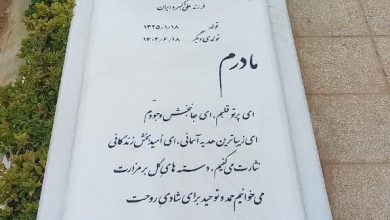 فرزند علی اکبر و ایران
تولد ۱۳۲۵/۱/۱۸
تولدی دیگر ۱۴۰۲/۶/۱۸
مادرم
ای پرتو قلبم، ای جانبخش وجودم
ای زیباترین هدیه آسمانی، ای امیدبخش زندگانی
نثارت می‌کنیم، دسته های گل بر مزارت
می‌خوانیم حمد و توحید برای شادی روحت